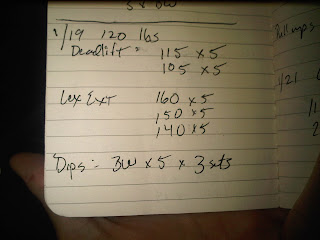 5x BW
1/19 120 lbs
Deadlift: 115 x 5
105 x 5
Lex Ext 160 x 5
150 x 5
140 x 5
Dips: BW x 5 x 3 sets
Pull ups
1/21